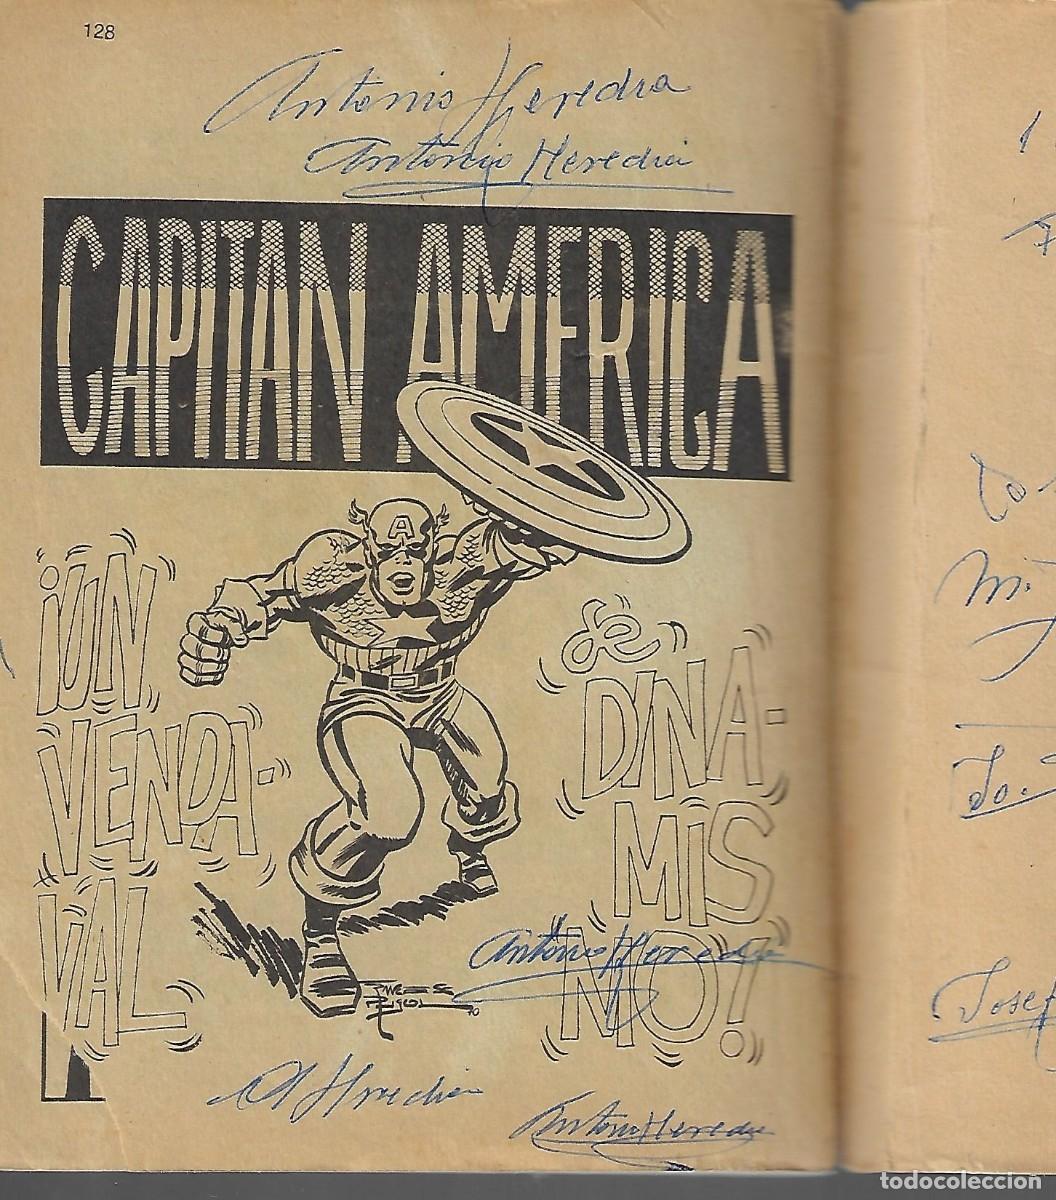 128
Antonio Heredia
Antonio Heredia
CAPITAN AMERICA
A
¡UN
VENDA-
VAL
de
DINA-
MIS
NO!
Antonio Heredia
70
A Heredia
Antonio Heredia
M.
Jo.
Josef
todocoleccion